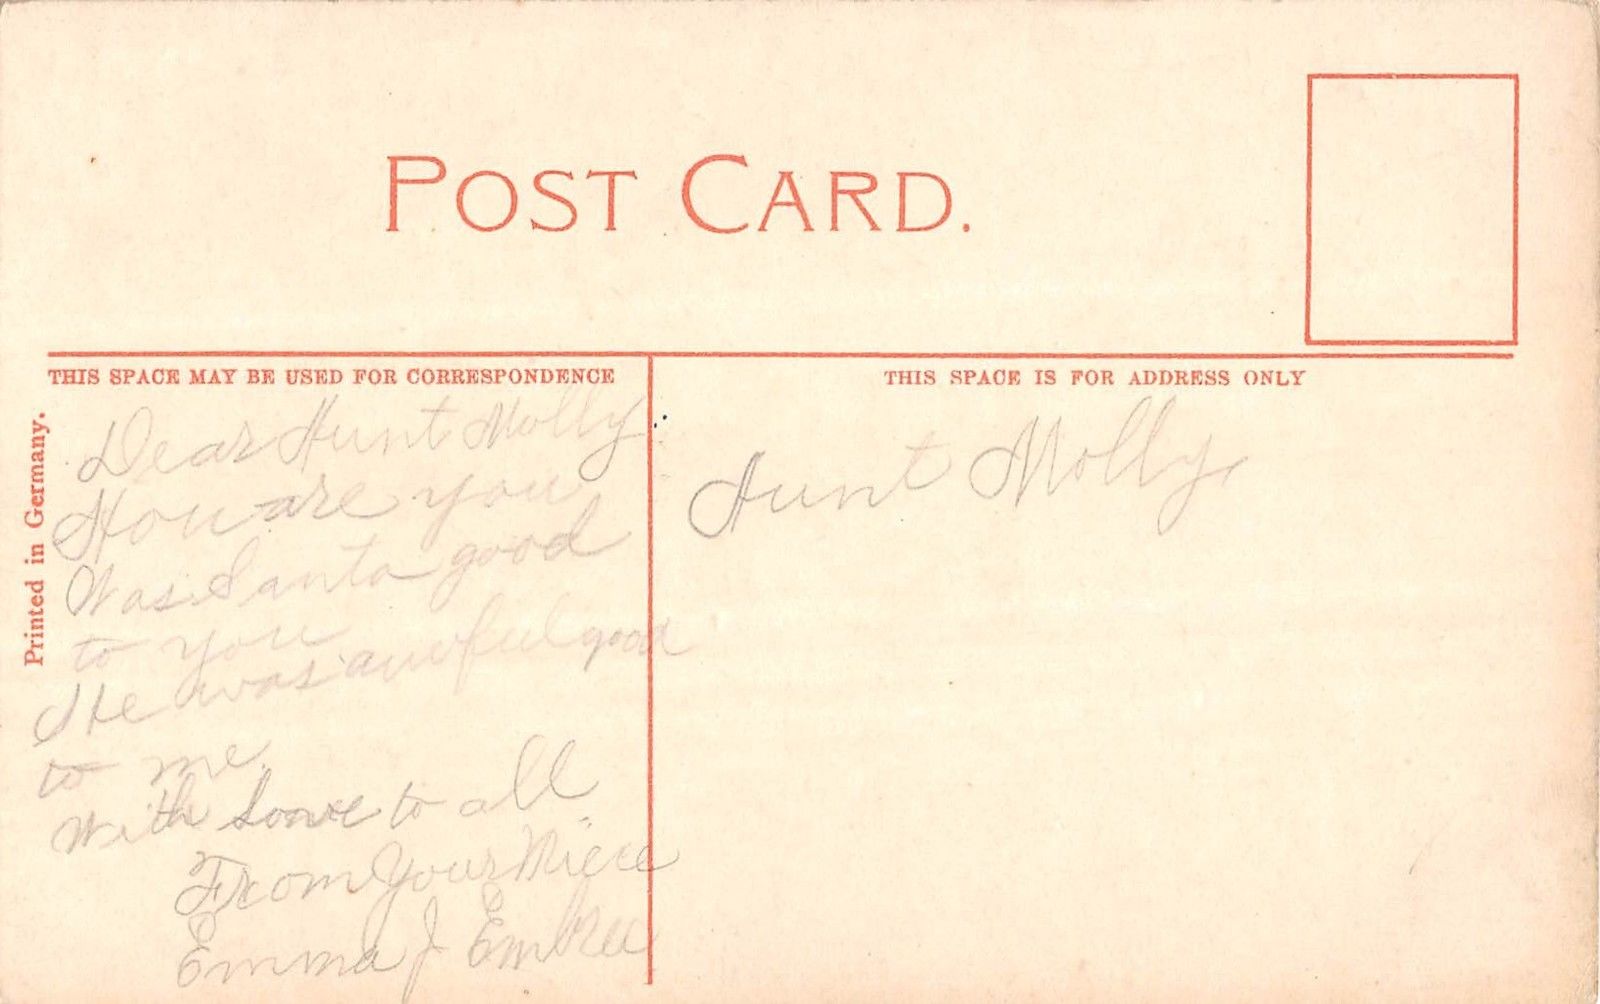 POST CARD.
THIS SPACE MAY BE USED FOR CORRESPONDENCE
THIS SPACE IS FOR ADDRESS ONLY
Printed in Germany.
Dear Aunt Molly
How are you
Was Santa good
to you
He was awful good
to me.
With love to all
From Your Niece
Emma J Embree
Aunt Molly